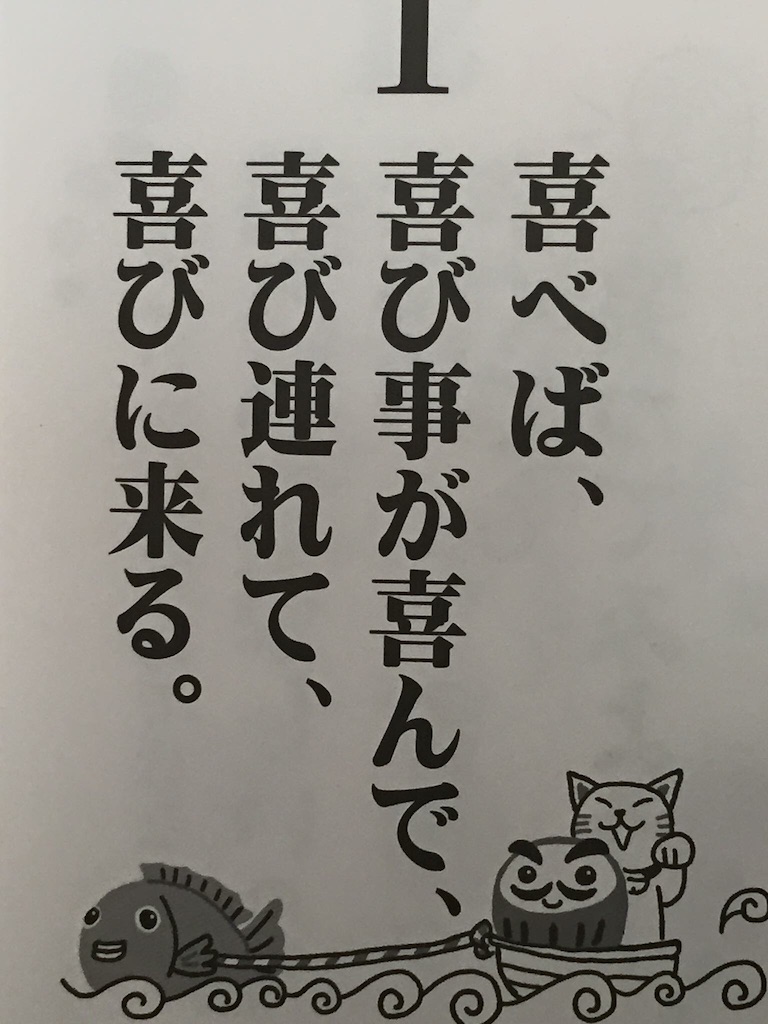 1
喜べば、
喜び事が喜んで、
喜び連れて、
喜びに来る。